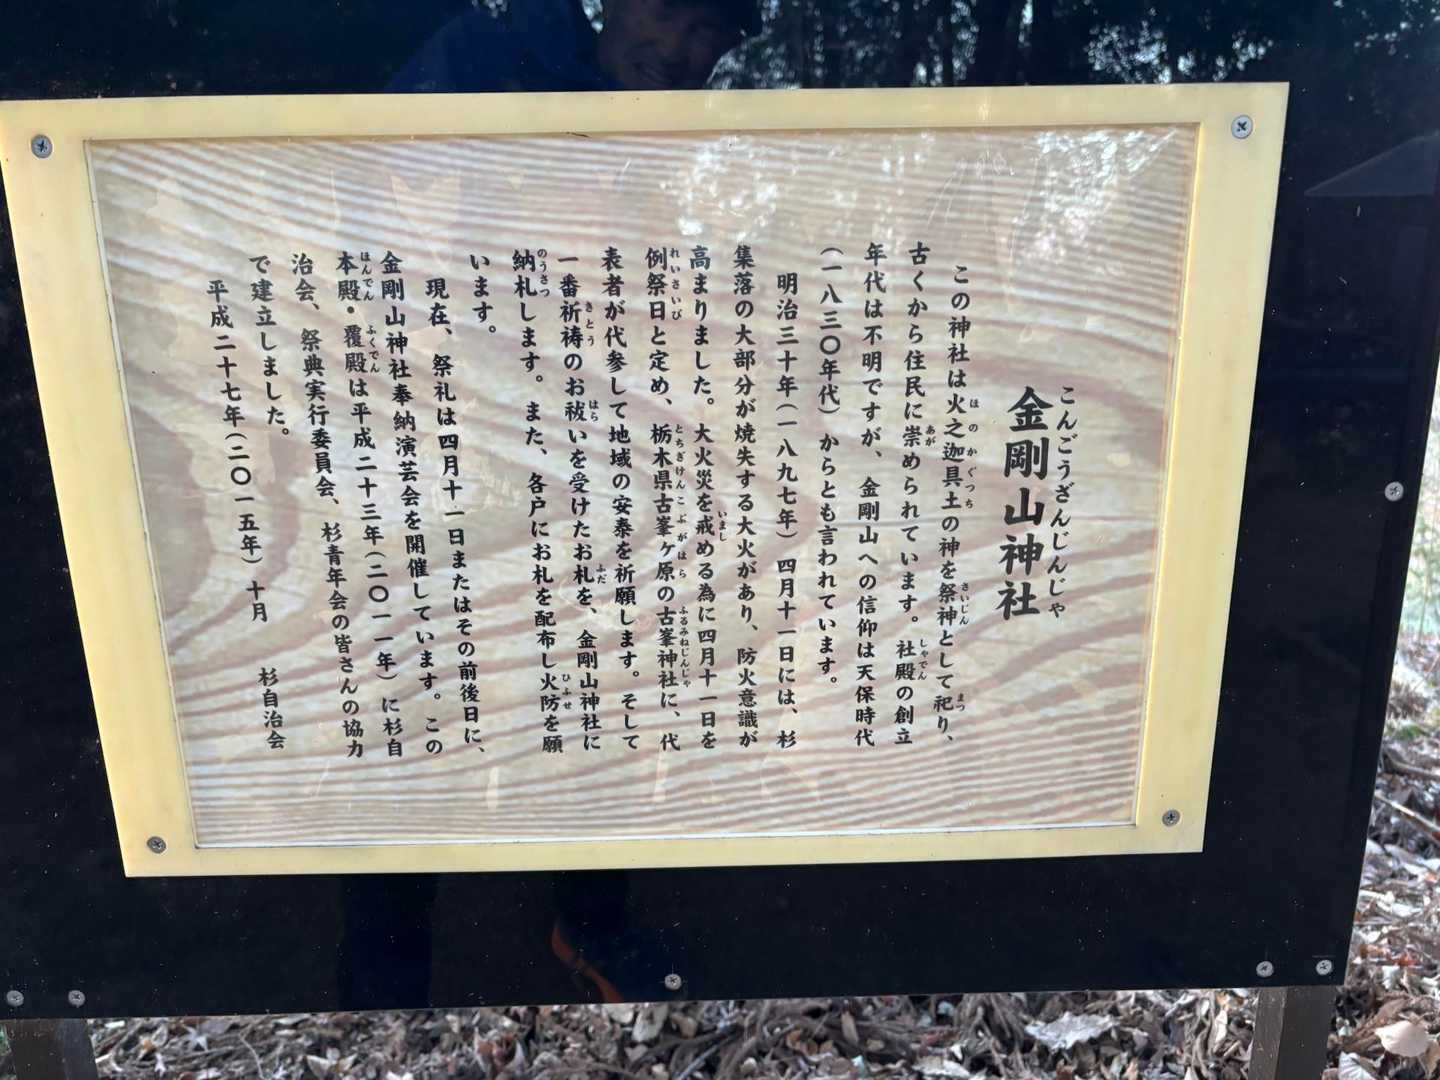 こんごうざんじんじゃ
金剛山神社
この神社は火之迦具土の神を祭神として祀り、
古くから住民に崇められています。社殿の創立
年代は不明ですが、金剛山への信仰は天保時代
（一八三〇年代）からとも言われています。
明治三十年（一八九七年）四月十一日には、杉
集落の大部分が焼失する大火があり、防火意識が
高まりました。大火災を戒める為に四月十一日を
例祭日と定め、栃木県古峯ヶ原の古峯神社に、代
表者が代参して地域の安泰を祈願します。そして
一番祈祷のお祓いを受けたお札を、金剛山神社に
納札します。また、各戸にお札を配布し火防を願
います。
現在、祭礼は四月十一日またはその前後日に、
金剛山神社奉納演芸会を開催しています。この
本殿・覆殿は平成二十三年（二〇一一年）に杉自
治会、祭典実行委員会、杉青年会の皆さんの協力
で建立しました。
平成二十七年（二〇一五年）十月 杉自治会